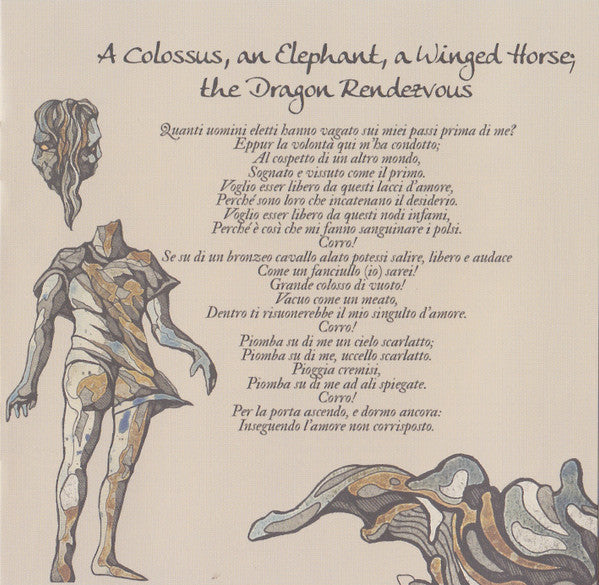 A Colossus, an Elephant, a Winged Horse;
the Dragon Rendezvous
Quanti uomini eletti hanno vagato sui miei passi prima di me?
Eppur la volontà qui m'ha condotto;
Al cospetto di un altro mondo,
Sognato e vissuto come il primo.
Voglio esser libero da questi lacci d'amore,
Perché sono loro che incatenano il desiderio.
Voglio esser libero da questi nodi infami,
Perché è così che mi fanno sanguinare i polsi.
Corro!
Se su di un bronzeo cavallo alato potessi salire, libero e audace
Come un fanciullo (io) sarei!
Grande colosso di vuoto!
Vacuo come un meato,
Dentro ti risuonerebbe il mio singulto d'amore.
Corro!
Piomba su di me un cielo scarlatto;
Piomba su di me, uccello scarlatto.
Pioggia cremisi,
Piomba su di me ad ali spiegate.
Corro!
Per la porta ascendo, e dormo ancora:
Inseguendo l'amore non corrisposto.